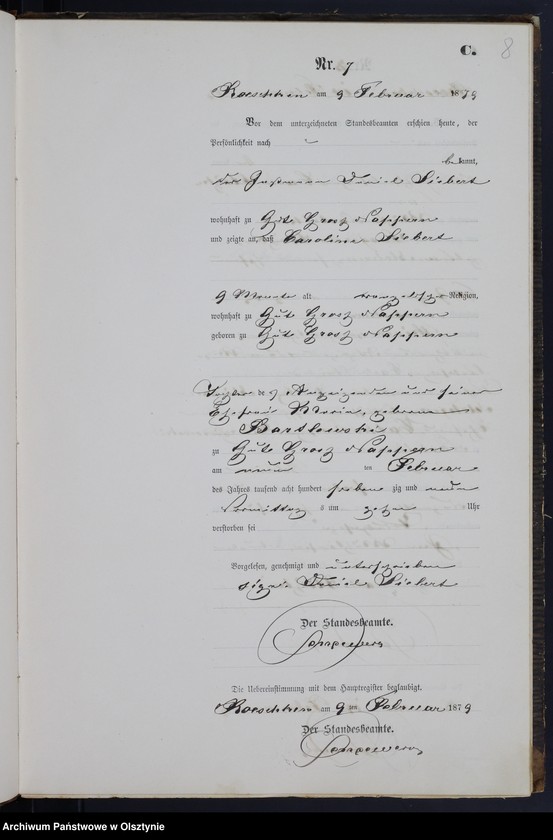 C.
8
Nr. 7
Roeschken am 9 Februar 1879
Vor dem unterzeichneten Standesbeamten erschien heute, der
Persönlichkeit nach
bekannt,
der Instmann Daniel Siebert
wohnhaft zu Gut Gross Nappern
und zeigte an, daß Caroline Siebert
9 Monate alt evangelischer Religion,
wohnhaft zu Gut Gross Nappern
geboren zu Gut Gross Nappern
Tochter des Anzeigenden und seiner
Ehefrau Maria, geborene
Bartlewski
zu Gut Gross Nappern
am neunten Februar
des Jahres tausend acht hundert siebenzig und neun
Vormittags um zehn Uhr
verstorben sei
Vorgelesen, genehmigt und unterschrieben
sign. Daniel Siebert
Der Standesbeamte.
Die Uebereinstimmung mit dem Hauptregister beglaubigt.
Roeschken am 9ten Februar 1879
Der Standesbeamte.
Archiwum Państwowe w Olsztynie